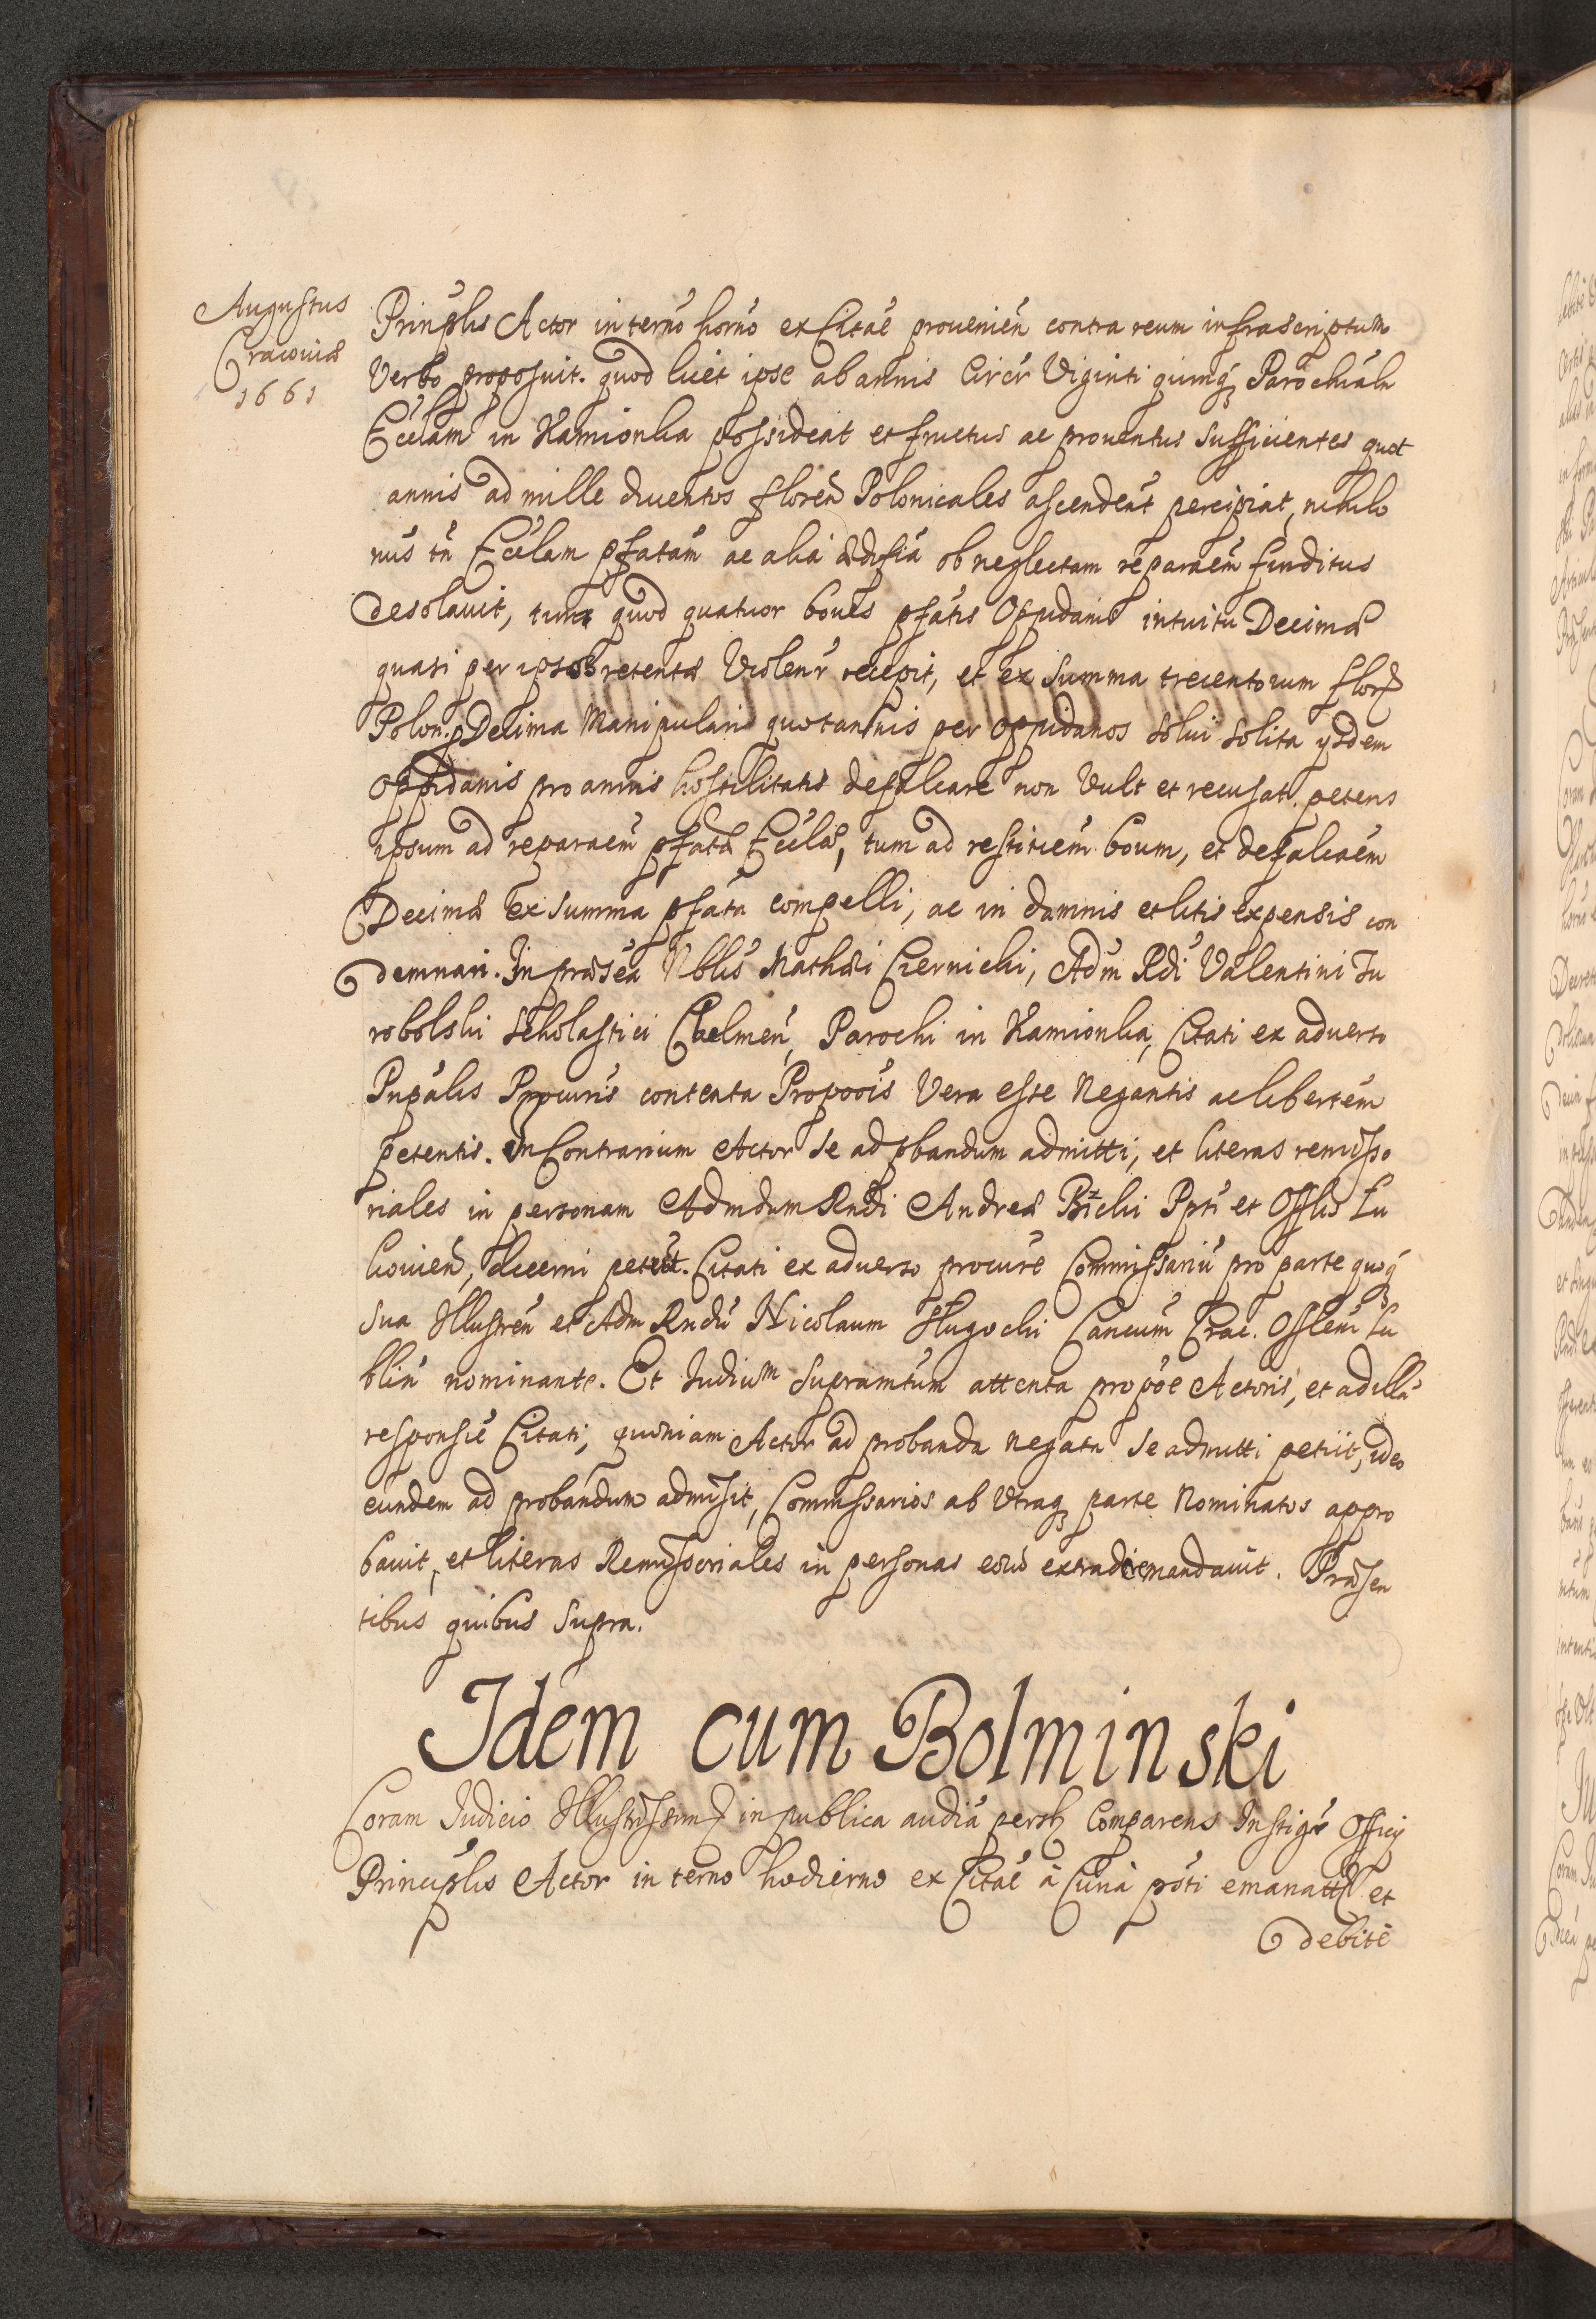 Augustus
Cracouiæ
1661
Prinplis Actor in terno horno ex Citae prouenien contra reum infrascriptum
Verbo proposuit. quod licet ipse ab annis Circr Viginti quinq Parochialn
Ecclam in Kamionka possideat et fructus ac prouentus sufficientes quot
annis ad mille ducentos floren Polonicales ascendent percipiat, nihilo
nus tn Ecclam pfatam ac alia ædifia ob neglectam reparaem funditus
desolauit, tum quod quatuor boues pfatis Oppidanis intuitu Decimæ
quasi per ipsos retentæ Violenr recepit, et ex summa trecentorum flor
Polon. p Decima Manipulari quotannis per oppidanos solui solita ysdem
oppidanis pro annis hostilitatis defalcare non Vult et recusat. petens
ipsum ad reparaem pfatæ Ecclæ, tum ad restitiem boum, et defalcaem
Decimæ ex summa pfata compelli, ac in damnis et litis expensis con
demnari. In præsea Nblis Mathæi Czernicki, Adm Rdi Valentini Tu
robolski Scholastici Chelmen, Parochi in Kamionka, Citati ex aduerso
Pnpalis Procuris contenta Propoois Vera esse Negantis ac libertem
petentis. In Contrarium Actor se ad pbandum admitti, et literas remisso
riales in personam Admdum Rndi Andreæ Ppti et Offlis Lu
kouien, decerni petiit. Citati ex aduerso procure Commissariu pro parte quoq
sua Illustren et Adm Rndu Nicolaum Slugocki Cancum Crac. Offlem Lu
blin nominante. Et Iudium supramtum attenta propoe Actoris, et ad illa
responsie Citati, quoniam Actor ad probanda negata se admitti petiit, ideo
eundem ad probandum admisit, Commissarios ab Vtraq parte Nominatos appro
bauit, et literas Remissoriales in personas eoru extradi mandauit. Præsen
tibus quibus supra.
Idem cum Bolminski
Coram Iudicio Illustrissimi in publica audia persl Comparens Instigr Officy
Principlis Actor in terno hodierno ex Citae à Curia pnti emanatæ et
debite